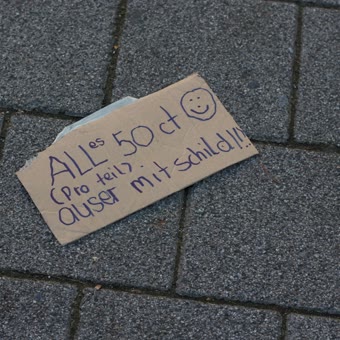 ALLes 50 ct
(Pro teil).
auser mit schild!!!